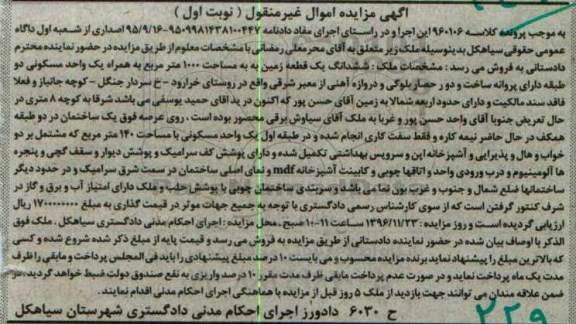 آگهی مزایده اموال غیرمنقول ( نوبت اول )
به موجب پرونده کلاسه ۹۶۰۱۰۶ این اجرا و در راستای اجرای مفاد دادنامه ۹۵۰۹۹۸۱۴۳۸۱۰۰۴۴۷-۹۵/۹/۱۶ اصداری از شعبه اول دادگاه
عمومی حقوقی سیاهکل بدینوسیله ملک زیر متعلق به آقای محرمعلی رمضانی با مشخصات معلوم از طریق مزایده در حضور نماینده محترم
دادستانی به فروش می رسد : مشخصات ملک : ششدانگ یک قطعه زمین به مساحت ۱۰۰۰ متر مربع به همراه یک واحد مسکونی دو
طبقه دارای پروانه ساخت و دور حصار بلوکی و دروازه آهنی از معبر شرقی واقع در روستای خرارود - خ سردار جنگل - کوچه جانباز و فعلا
فاقد سند مالکیت و دارای حدود اربعه شمالا به زمین آقای حسن پور که اکنون در ید آقای حمید یوسفی می باشد شرقا به کوچه ۸ متری در
حال تعریض جنوبا آقای واحد حسن پور و غربا به ملک آقای سیاوش برقی محصور بوده است . روی عرصه فوق یک ساختمان در دو طبقه
همکف در حال حاضر نیمه کاره و فقط سفت کاری انجام شده و در طبقه اول یک واحد مسکونی با مساحت ۱۴۰ متر مربع که مشتمل بر دو
خواب و هال و پذیرایی و آشپزخانه اپن و سرویس بهداشتی تکمیل شده و دارای پوشش کف سرامیک و پوشش دیوار و سقف گچی و پنجره
ها آلومینیوم و درب ورودی واحد و اتاقها چوبی و کابینت آشپزخانه mdf و نمای اصلی ساختمان در سمت شرق سرامیک و در حدود دیگر
ساختمانها ضلع شمال و جنوب و غرب بون نما می باشد و سربندی ساختمان چوبی با پوشش حلب و ملک دارای امتیاز آب و برق و گاز در
شرف کنتور گرفتن است که از سوی کارشناس رسمی دادگستری با توجه به جمیع جهات موثر در قیمت گذاری به مبلغ ۱۷۰۰۰۰۰۰۰۰ ریال
ارزیابی گردیده است و روز مزایده : ۱۳۹۶/۱۱/۲۳ ساعت ۱۱-۱۰ صبح . محل مزایده : اجرای احکام مدنی دادگستری سیاهکل . ملک فوق
الذکر با اوصاف بیان شده در حضور نماینده دادستانی از طریق مزایده به فروش می رسد و قیمت پایه از مبلغ ذکر شده شروع شده و کسی
که بالاترین مبلغ را پیشنهاد نماید برنده مزایده محسوب و می بایست ۱۰ درصد مبلغ پیشنهادی را باید فی المجلس پرداخت و مابقی را ظرف
مدت یک ماه پرداخت نماید و در صورت عدم پرداخت مابقی ظرف مدت مقرر ۱۰ درصد واریزی به نفع صندوق دولت ضبط خواهد گردید. در
ضمن علاقه مندان می توانند جهت بازدید از ملک ۵ روز قبل از مزایده با هماهنگی اجرای احکام مدنی اقدام نمایند.
ح ۶۰۳۰ دادورز اجرای احکام مدنی دادگستری شهرستان سیاهکل
۲۲۹